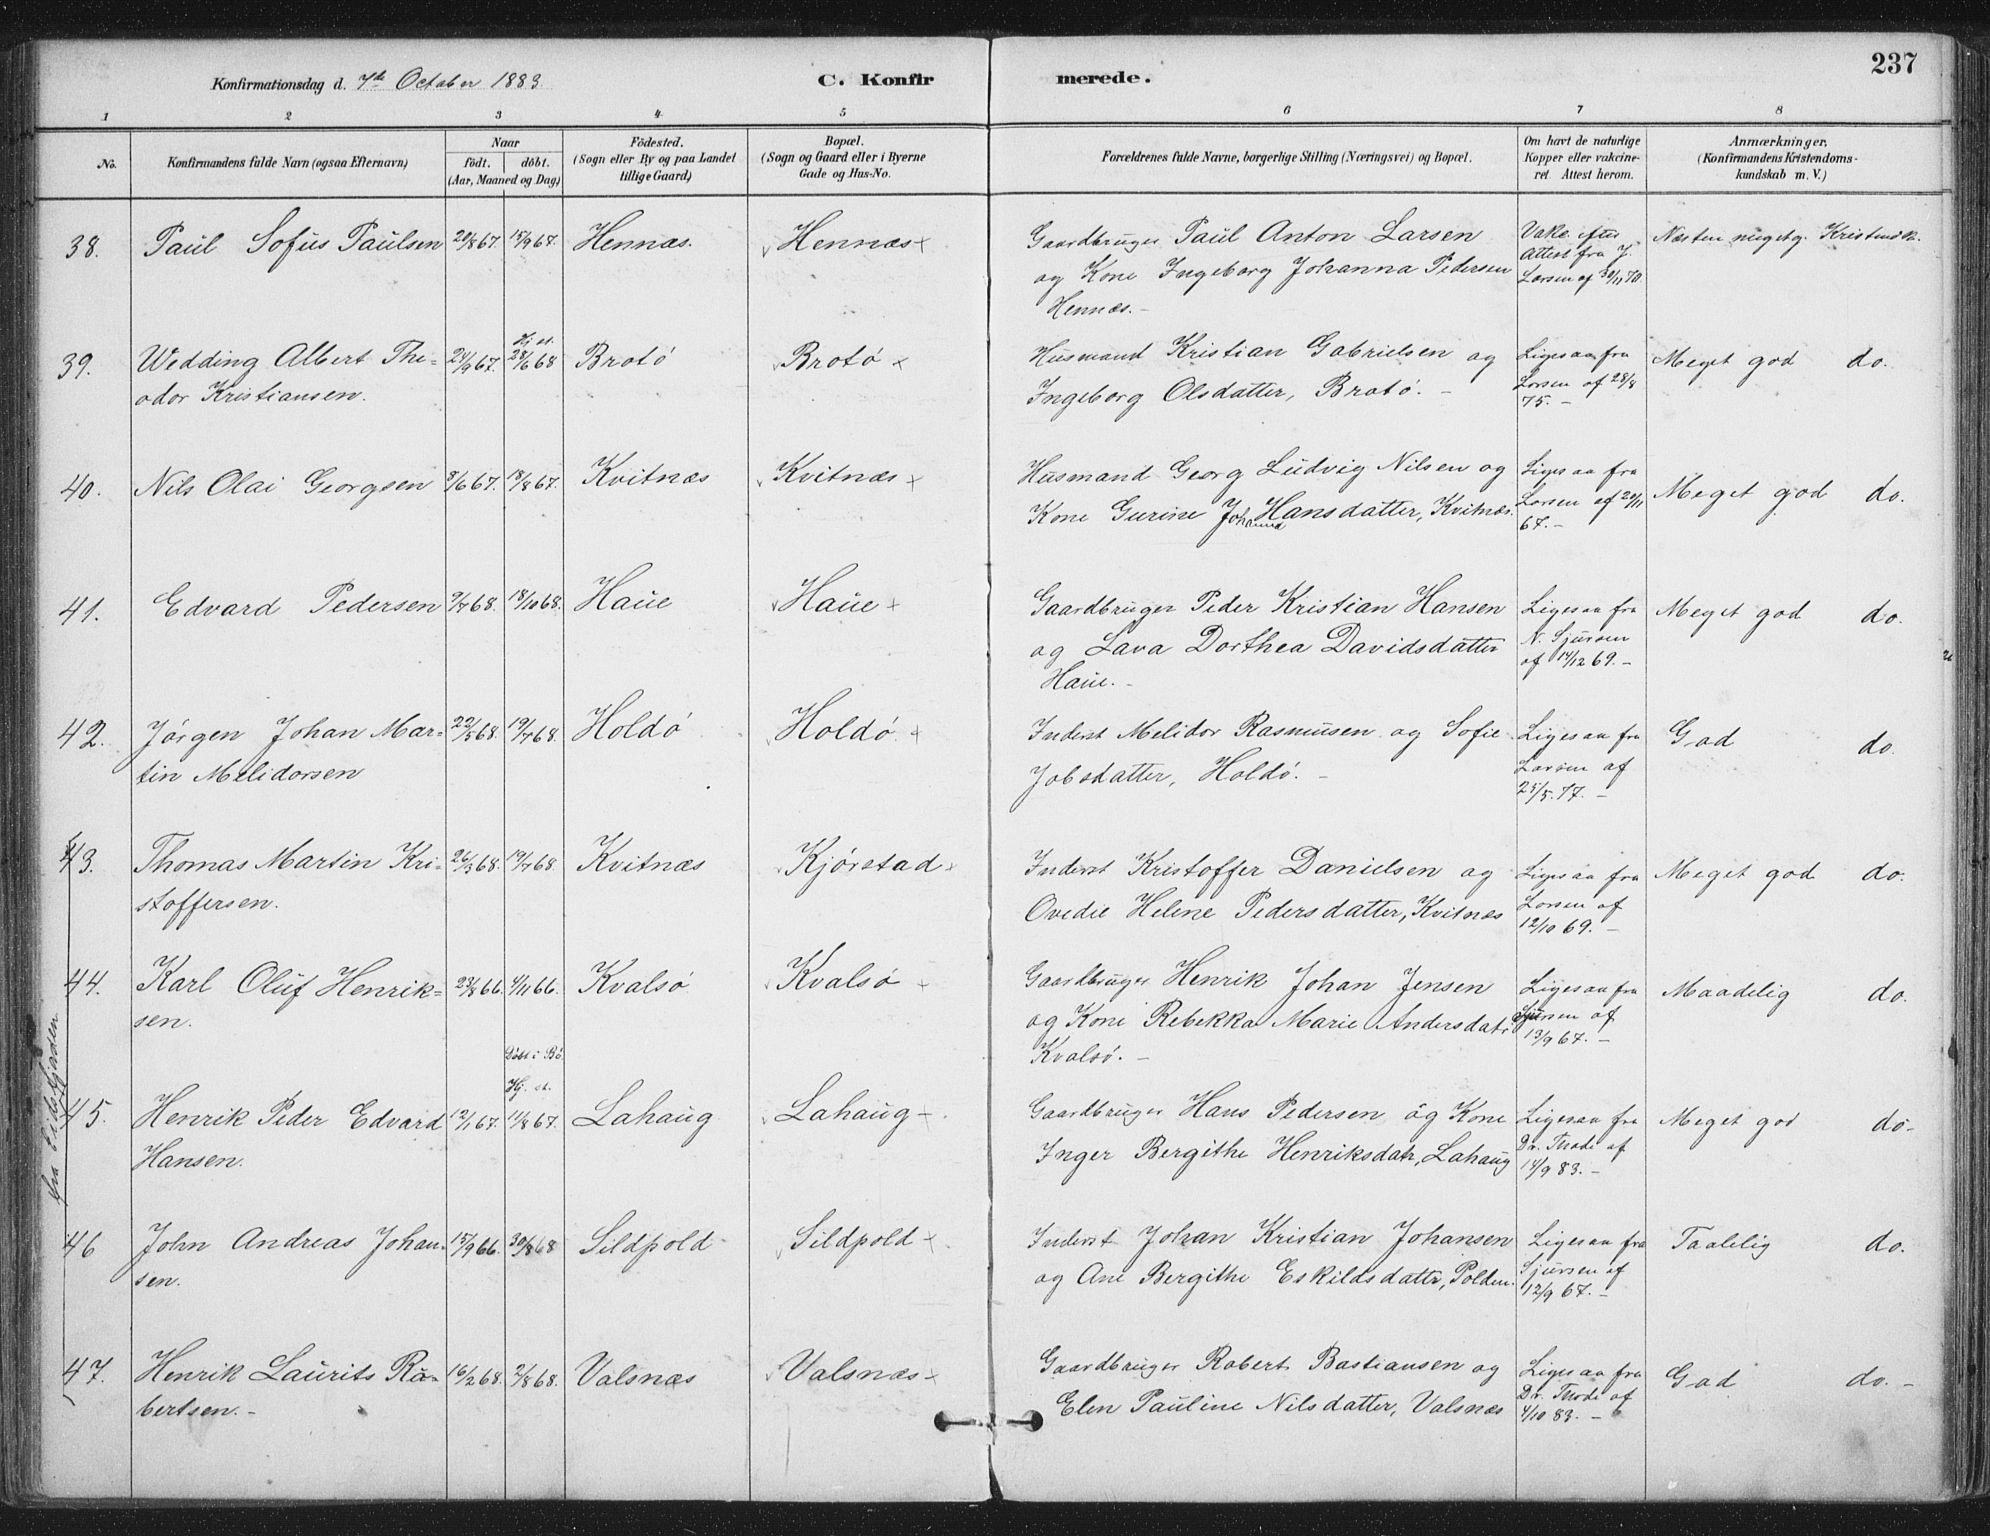 Konfirmationsdag d. 7de October 1883.
C. Konfirmerede.
237
1 2 3 4 5 6 7 8
No.
Konfirmandens fulde Navn (ogsaa Efternavn)
Naar
födt. döbt.
(Aar, Maaned og Dag)
Födested.
(Sogn eller By og paa Landet
tillige Gaard)
Bopæl.
(Sogn og Gaard eller i Byerne
Gade og Hus-No.
Forældrenes fulde Navne, borgerlige Stilling (Næringsvei) og Bopæl.
Om havt de naturlige
Kopper eller vakcine-
ret. Attest herom.
Anmærkninger.
(Konfirmandens Kristendoms-
kundskab m. V.)
38. Paul Sofus Paulsen 20/8 67. 15/9 67. Hennæs. Hennæs
Gaardbruger Paul Anton Larsen
og Kone Ingeborg Johanna Pedersen
Hennæs. -
Vakc. efter
Attest fra J.
Larsen af 30/11 70.
Næsten meget g. Kristendk.
39. Wedding Albert The-
odor Kristiansen.
24/9 67. Hj. st. 28/6 68 Brotö Brotö
Husmand Kristian Gabrielsen og
Ingeborg Olsdatter, Brotö. -
Ligesaa fra
Larsen af 28/8
75. -
Meget god do.
40. Nils Olai Georgsen 8/6 67. 18/8 67. Kvitnæs Kvitnæs
Husmand Georg Ludvig Nilsen og
Kone Gurine Johanna Hansdatter, Kvitnæs.
Ligesaa fra
Larsen af 20/11
67. -
Meget god do.
41. Edvard Pedersen 9/7 68. 18/10 68. Haue Haue
Gaardbruger Peder Kristian Hansen
og Lava Dorthea Davidsdatter
Haue. -
Ligesaa fra
N. Sjursen
af 14/12 69. -
Meget god do.
42. Jörgen Johan Mar-
tin Melidorsen
22/5 68. 19/7 68. Holdö Holdö
Inderst Melidor Rasmusen og Sofie
Jobsdatter, Holdö. -
Ligesaa fra
Larsen af
25/5. 77. -
God do.
43. Thomas Martin Kri-
stoffersen.
26/3 68. 19/7 68. Kvitnæs Kjörstad
Inderst Kristoffer Danielsen og
Ovedie Helene Pedersdatter, Kvitnæs
Ligesaa fra
Larsen af
12/10 69. -
Meget god do.
44. Karl Oluf Henrik-
sen.
23/8 66. 4/11 66. Kvalsö Kvalsö
Gaardbruger Henrik Johan Jensen
og Kone Rebekka Marie Andersdatr
Kvalsö. -
Ligesaa fra
Sjursen af
13/9 67. -
Maadelig do.
fra Eidsfjorden
45. Henrik Peder Edvard
Hansen.
12/1 67. Döbt i Bö. Hj. st. 11/8 67. Lahaug Lahaug
Gaardbruger Hans Pedersen og Kone
Inger Bergithe Henriksdatr, Lahaug
Ligesaa fra
Dr. Thode af
14/9 83. -
Meget god do-
46 John Andreas Johan-
sen.
15/9 66. 30/8 68 Sildpold Sildpold
Inderst Johan Kristian Johansen
og Ane Bergithe Eskildsdattr, Polden.
Ligesaa fra
Sjursen af
12/9 67. -
Taalelig do.
47. Henrik Laurits Ro-
bertsen. -
16/2 68. 2/8 68. Valsnæs Valsnæs
Gaardbruger Robert Bastiansen og
Elen Pauline Nilsdatter, Valsnæs
Ligesaa fra
Dr. Thode af
4/10 83. -
God do. -